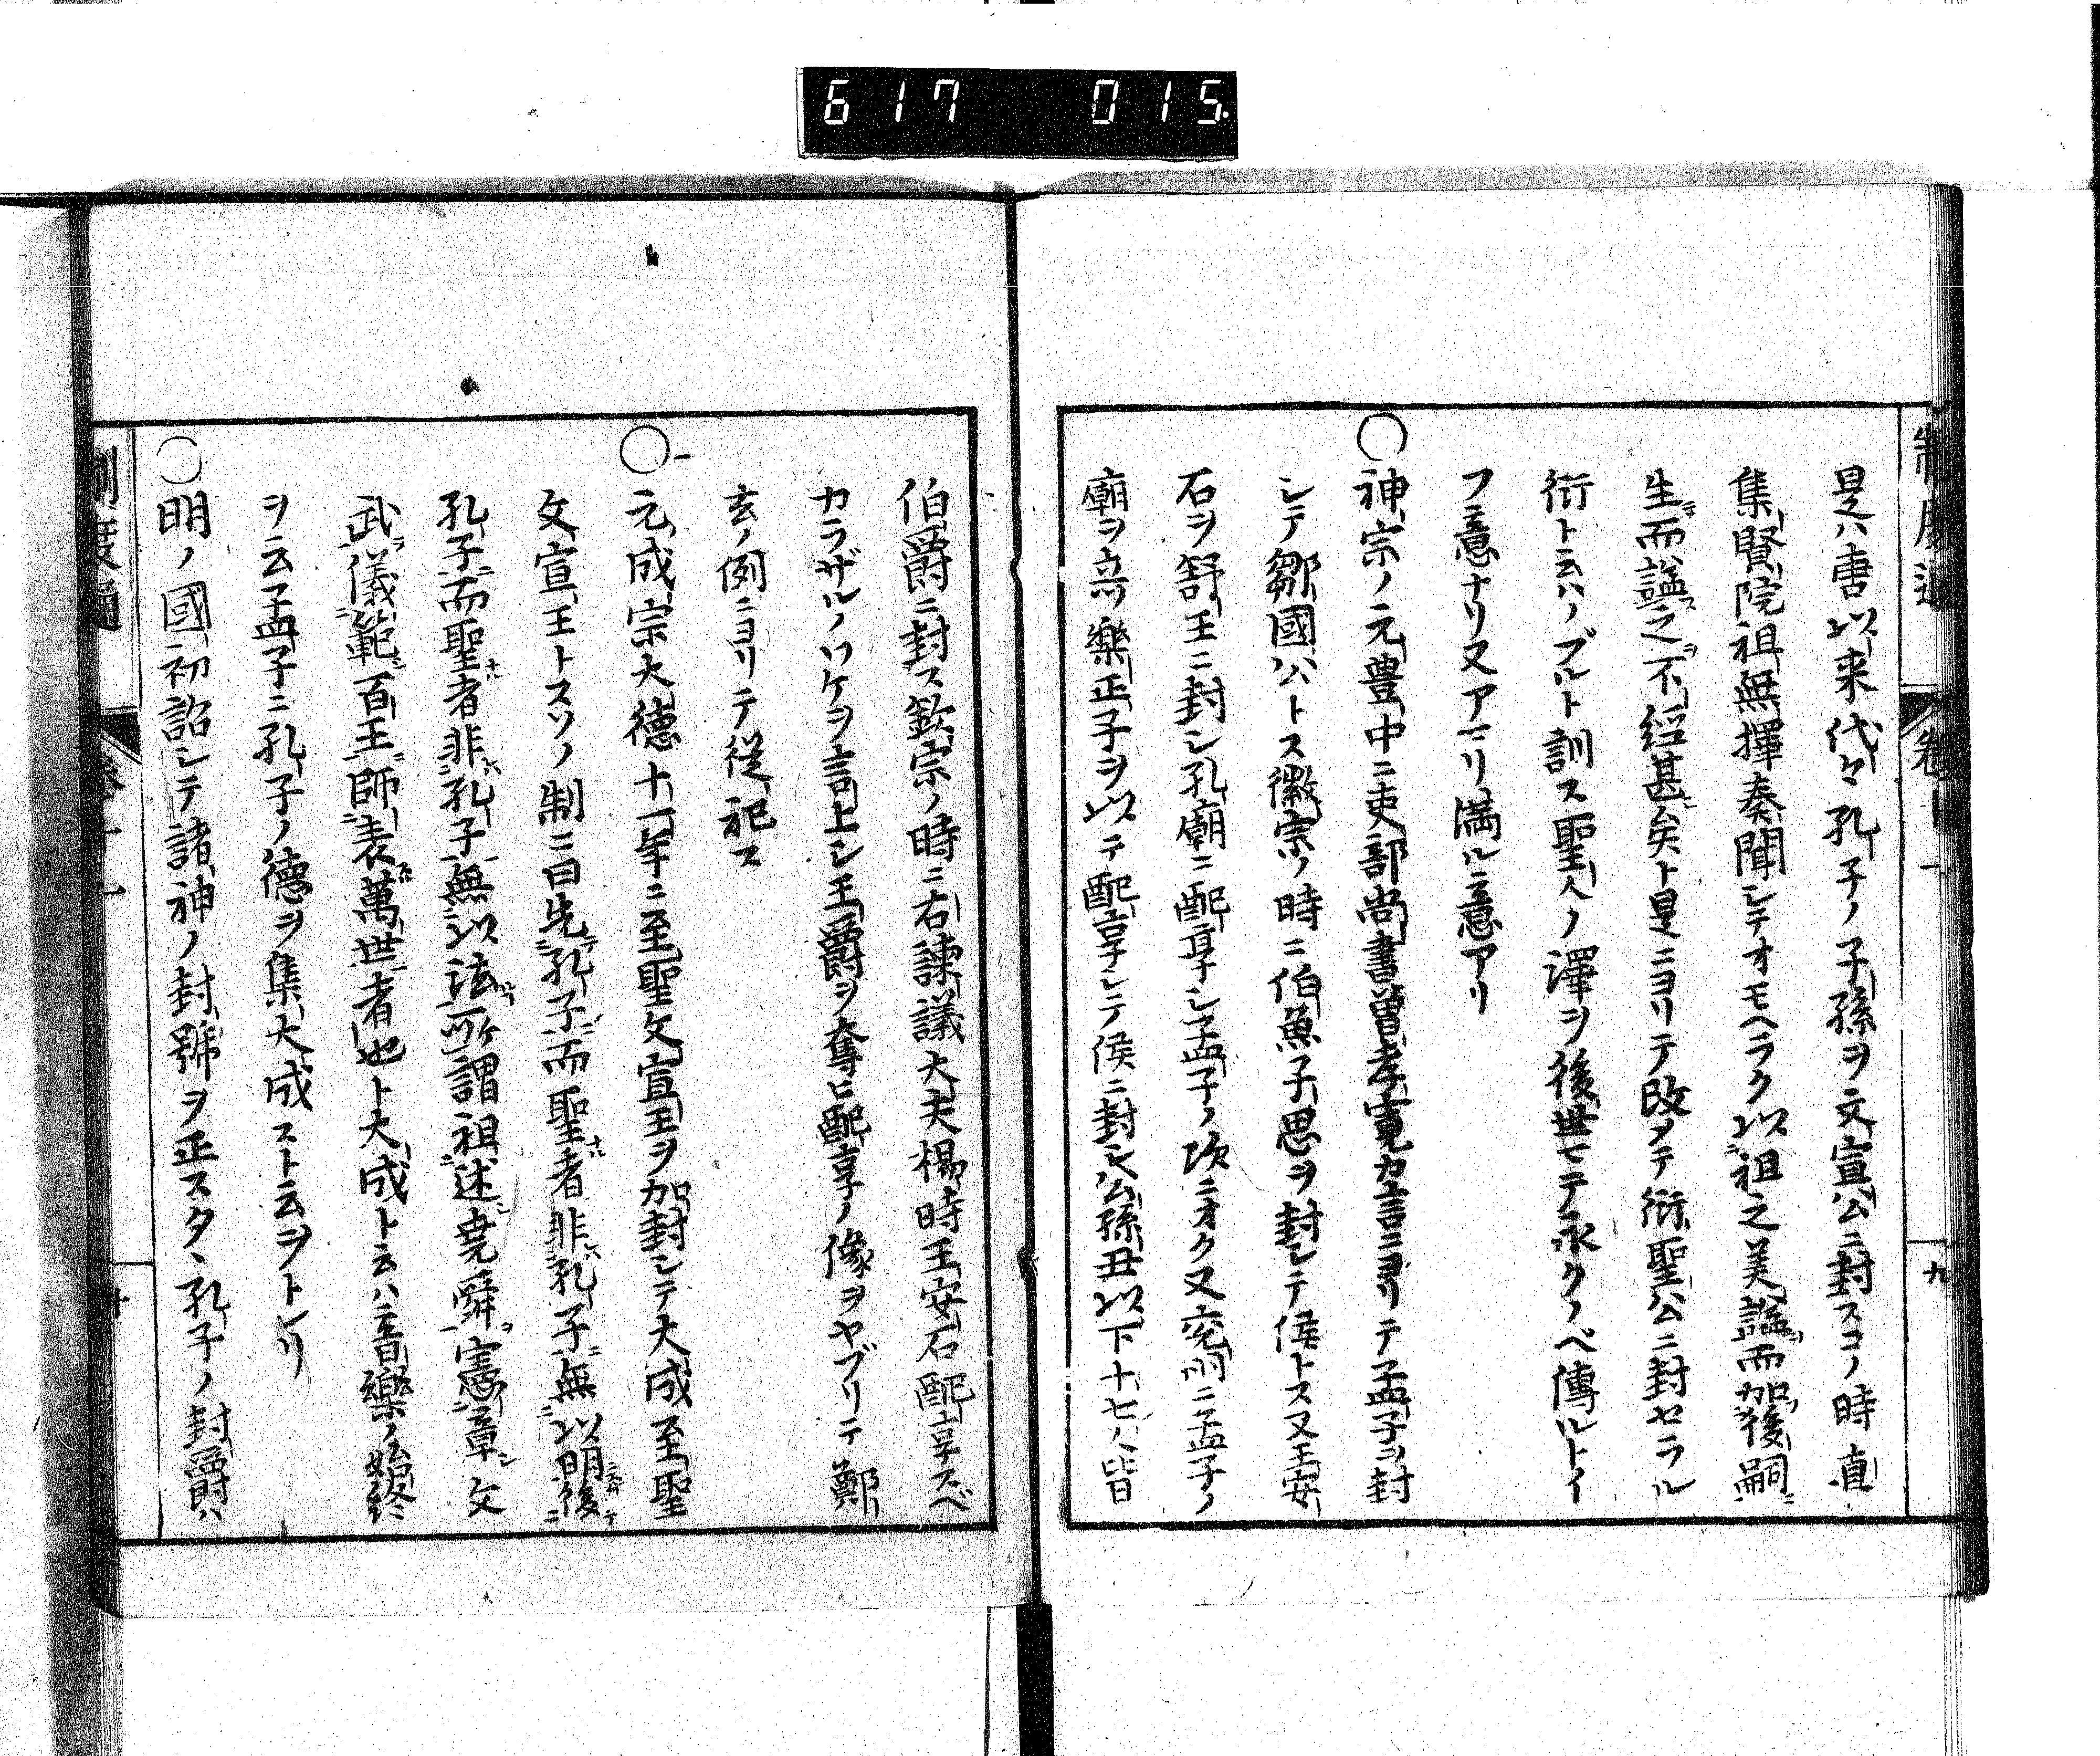 617 015
制度通 卷十一 九
是ハ唐以来代々孔子ノ子孫ヲ文宣公ニ封スコノ時直
集賢院祖無擇奏聞シテオモヘラク以祖之美謚而加後嗣
生而謚之不經甚矣ト是ニヨリテ改メテ衍聖公ニ封セラル
衍ト云ハノブルト訓ス聖人ノ澤ヲ後世マテ永クノベ傳ルトイ
フ意ナリ又アマリ満ル意アリ
○神宗ノ元豊中ニ吏部尚書曽孝寛カ言ニヨリテ孟子ヲ封
シテ鄒國公トス徽宗ノ時ニ伯魚子思ヲ封シテ侯トス又王安
石ヲ舒王ニ封シ孔廟ニ配享シ孟子ノ次ニオク又兖州ニ孟子ノ
廟ヲ立ツ樂正子ヲ以テ配享シテ侯ニ封シ公孫丑以下十七人皆
伯爵ニ封ス欽宗ノ時ニ右諫議大夫楊時王安石配享スベ
カラザルノワケヲ言上シ王爵ヲ奪ヒ配享ノ像ヲヤブリテ鄭
玄ノ例ニヨリテ從祀ス
○元成宗大德十一年ニ至聖文宣王ヲ加封シテ大成至聖
文宣王トスソノ制ニ曰先孔子而聖者非孔子無以明後
孔子而聖者非孔子無以法所謂祖述堯舜憲章文
武儀範百王師表萬世者也ト大成ト云ハ音樂ノ始終
ヲ云孟子ニ孔子ノ德ヲ集大成スト云ヲトレリ
○明ノ國初詔シテ諸神ノ封號ヲ正スタヽ孔子ノ封爵ハ
制度通 卷十一 十